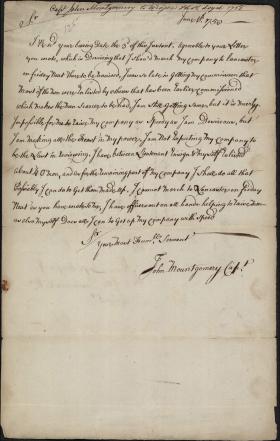 Capt John Montgomery to
Sr
I Rd your having Date the 3d of this Instant, agreable to your Letter
you wrote, which is desiring that I should march my Company to Lancaster
on friday next there to be mustered, I was so late in getting my Commission that
most of the men were Listed by others that has been Earlier Commissioned
which makes the men scarce to be had, I am still getting some, but it is merely
Impossible for me to raise my Company as Speedy as I am Desirous, but
I am making all the haste in my power, I am not Expecting my Company to
be the Last in reviewing, I have between Lieutenant Ensign & myself Listed
about 40 men, and as for the remaining part of my Company I shall do all that
Possibly I can do to get them made up. I cannot march to Lancaster on friday
Next as you have wrote to me, I have officers out on all hands helping to raise men
as also myself Doees all I can to Get up my Company with Speed
Sr
Your Most Humble Servant
John Mountgomery Capt